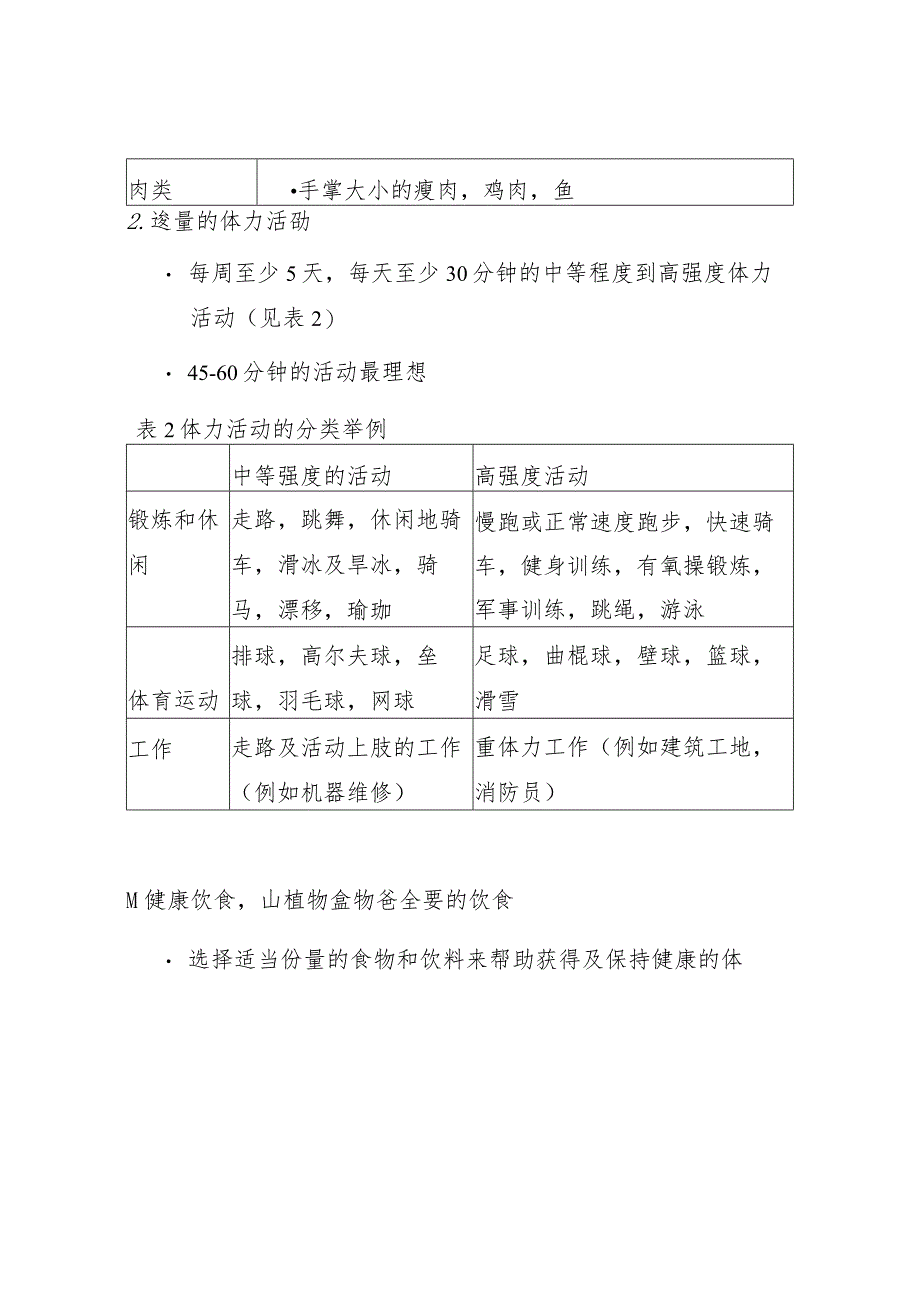 肉类 •手掌大小的瘦肉，鸡肉，鱼
2.逡量的体力活劭
· 每周至少5天，每天至少30分钟的中等程度到高强度体力
活动（见表2)
· 45-60分钟的活动最理想
表2体力活动的分类举例
中等强度的活动 高强度活动
锻炼和休
闲
走路，跳舞，休闲地骑
车，滑冰及旱冰，骑
马，漂移，瑜珈
慢跑或正常速度跑步，快速骑
车，健身训练，有氧操锻炼，
军事训练，跳绳，游泳
体育运动
排球，高尔夫球，垒
球，羽毛球，网球
足球，曲棍球，壁球，篮球，
滑雪
工作
走路及活动上肢的工作
（例如机器维修）
重体力工作（例如建筑工地，
消防员）
M健康饮食，山植物盒物爸全要的饮食
· 选择适当份量的食物和饮料来帮助获得及保持健康的体